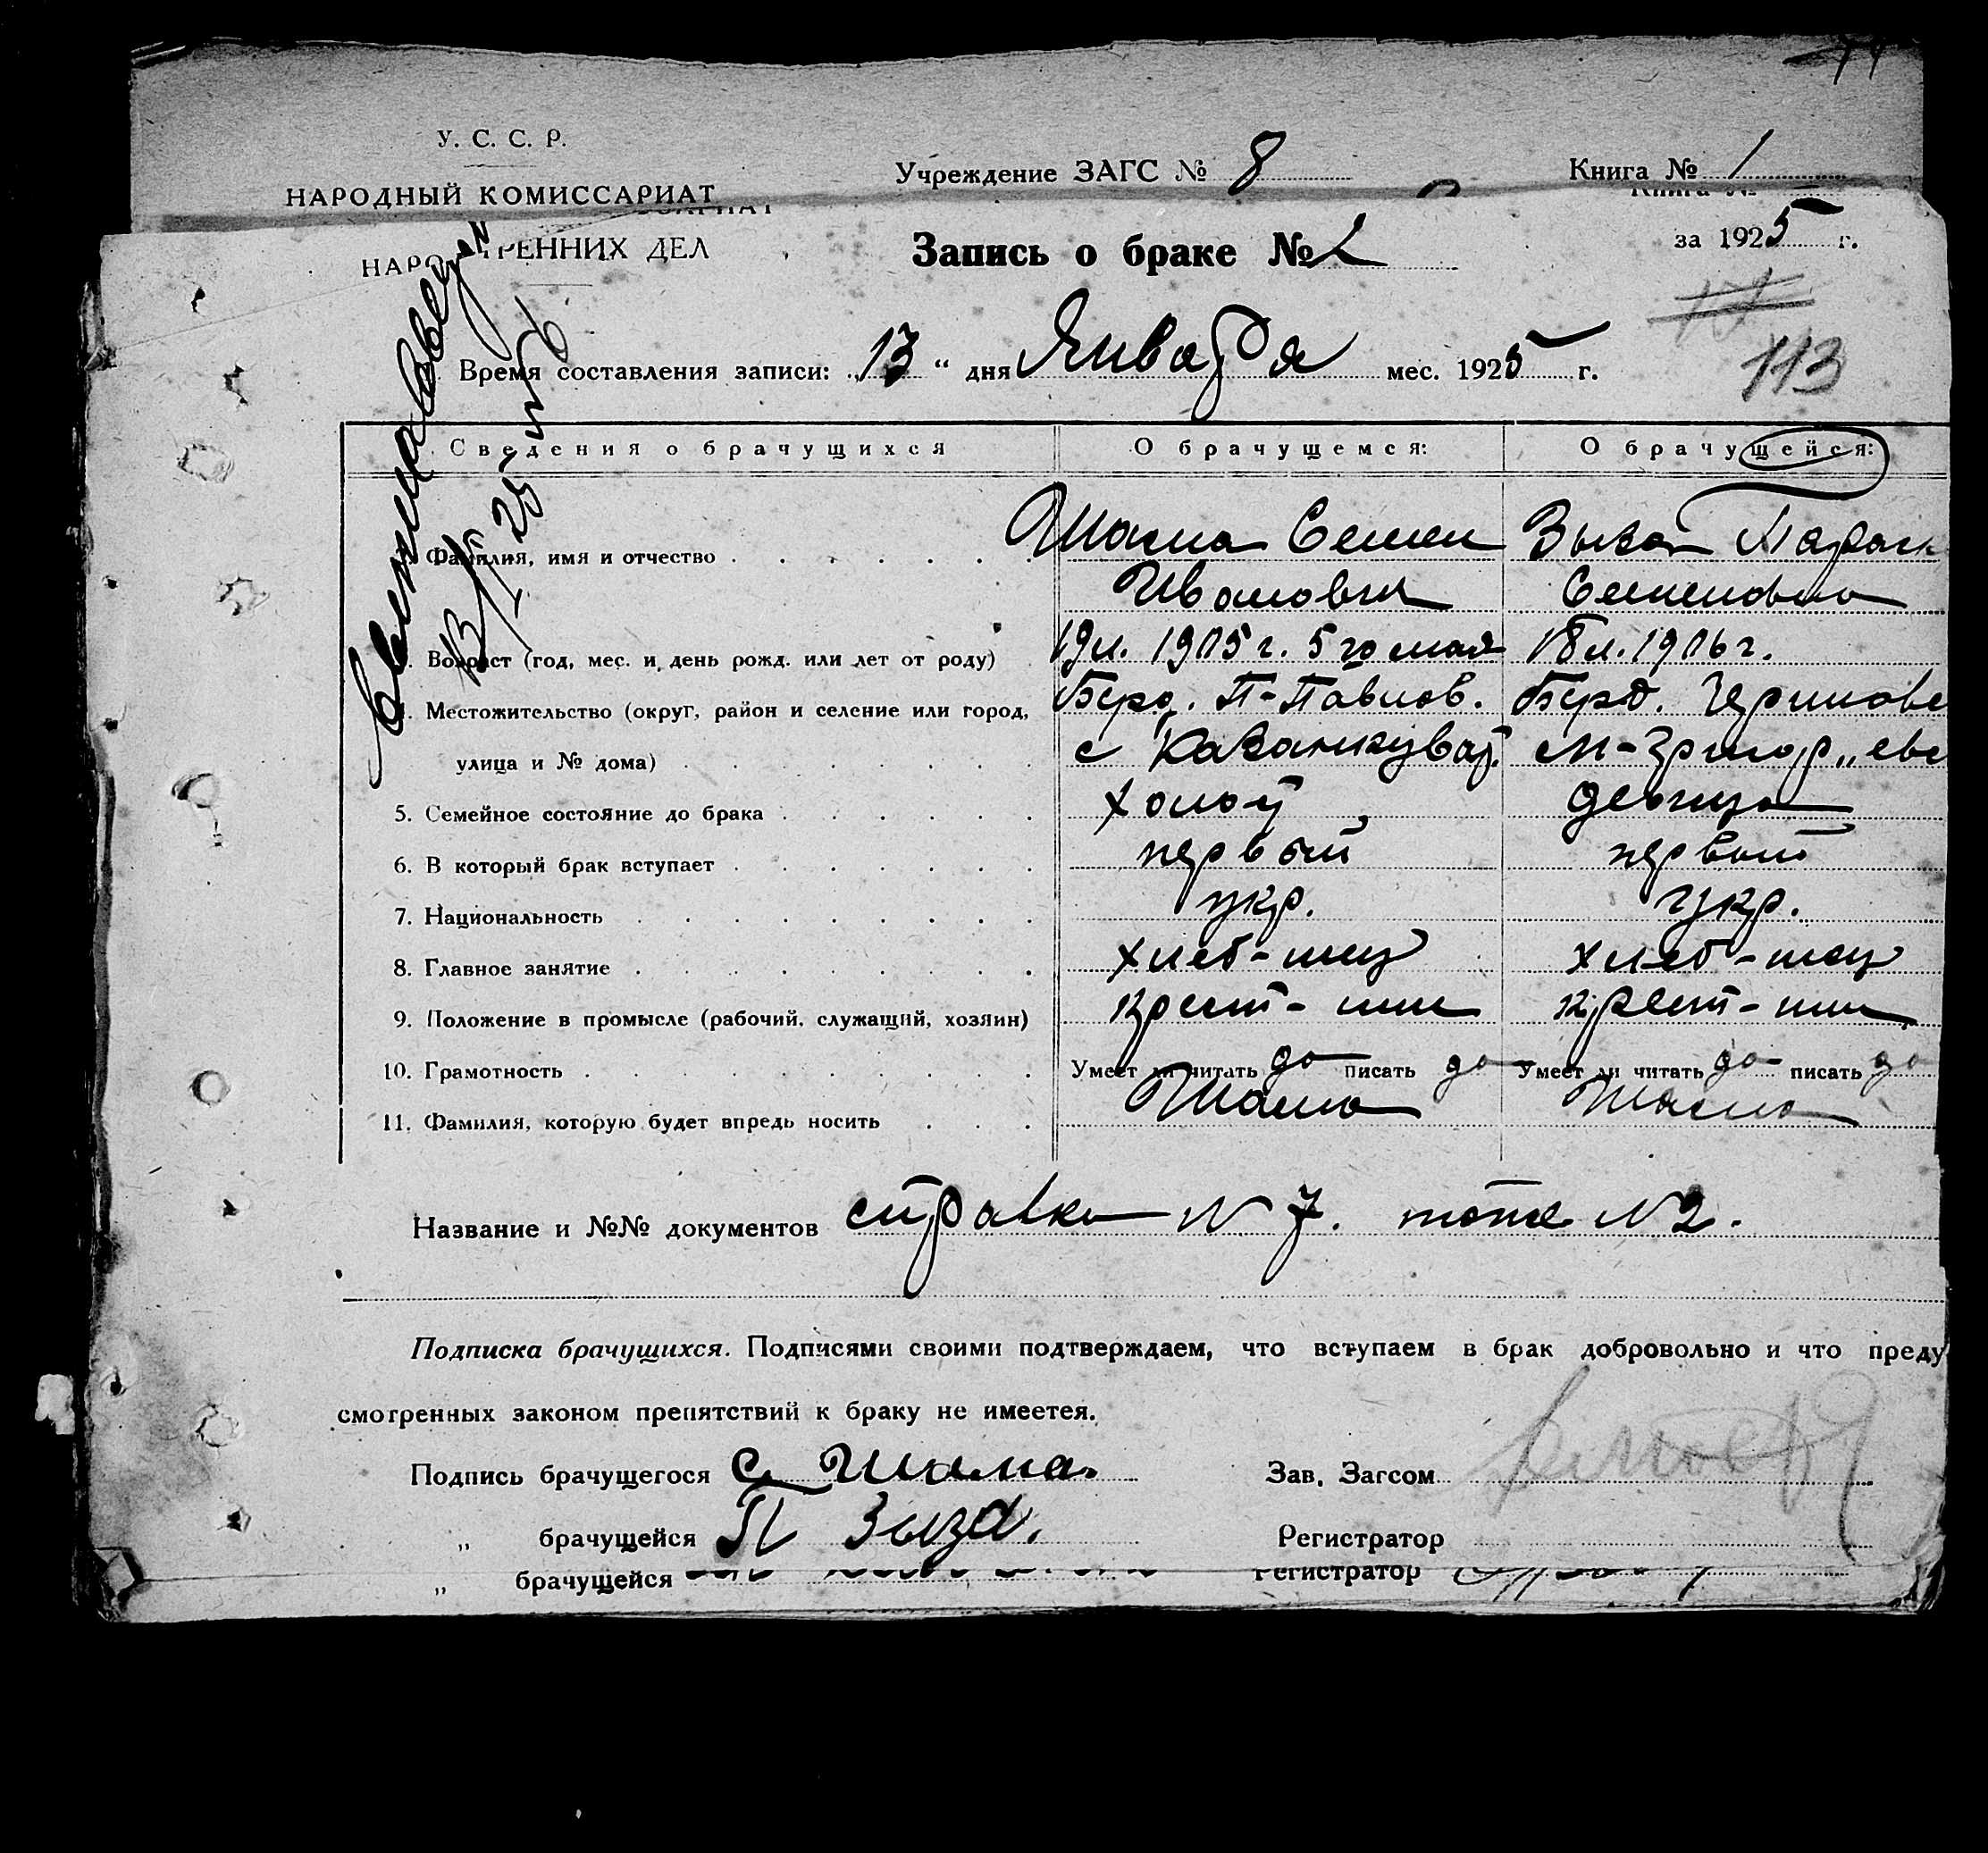 У. С. С. Р.
НАРОДНЫЙ КОМИССАРИАТ
Учреждение ЗАГС № 8
Книга № 1
РЕННИХ ДЕЛ
Запись о браке № 2
за 1925 г.
17
113
Время составления записи: 13 " дня Января мес. 1925 г.
Сведения о брачущихся О брачущемся: О брачущейся:
Фамилия, имя и отчество Шама Семен Зыза Параск
Иванович Семеновна
Возраст (год, мес. и день рожд. или лет от роду) 19 л. 1905 г. 5 го мая 18 л. 1906 г.
Местожительство (округ, район и селение или город, Берд. П-Павлов. Берд.
улица и № дома) с
5. Семейное состояние до брака холост девица
6. В который брак вступает первый первый
7. Национальность укр. укр.
8. Главное занятие хлеб-шец хлеб-шец
9. Положение в промысле (рабочий, служащий, хозяин) крест-нин крест-нин
10. Грамотность Умеет ли читать да писать да Умеет ли читать да писать да
11. Фамилия, которую будет впредь носить Шама Шама
Название и №№ документов справка N 7. тоже N 2.
Подписка брачущихся. Подписями своими подтверждаем, что вступаем в брак добровольно и что преду
смотренных законом препятствий к браку не имеетея.
Подпись брачущегося С. Шама. Зав. Загсом
„ брачущейся П Зыза. Регистратор
„ брачущейся Регистратор